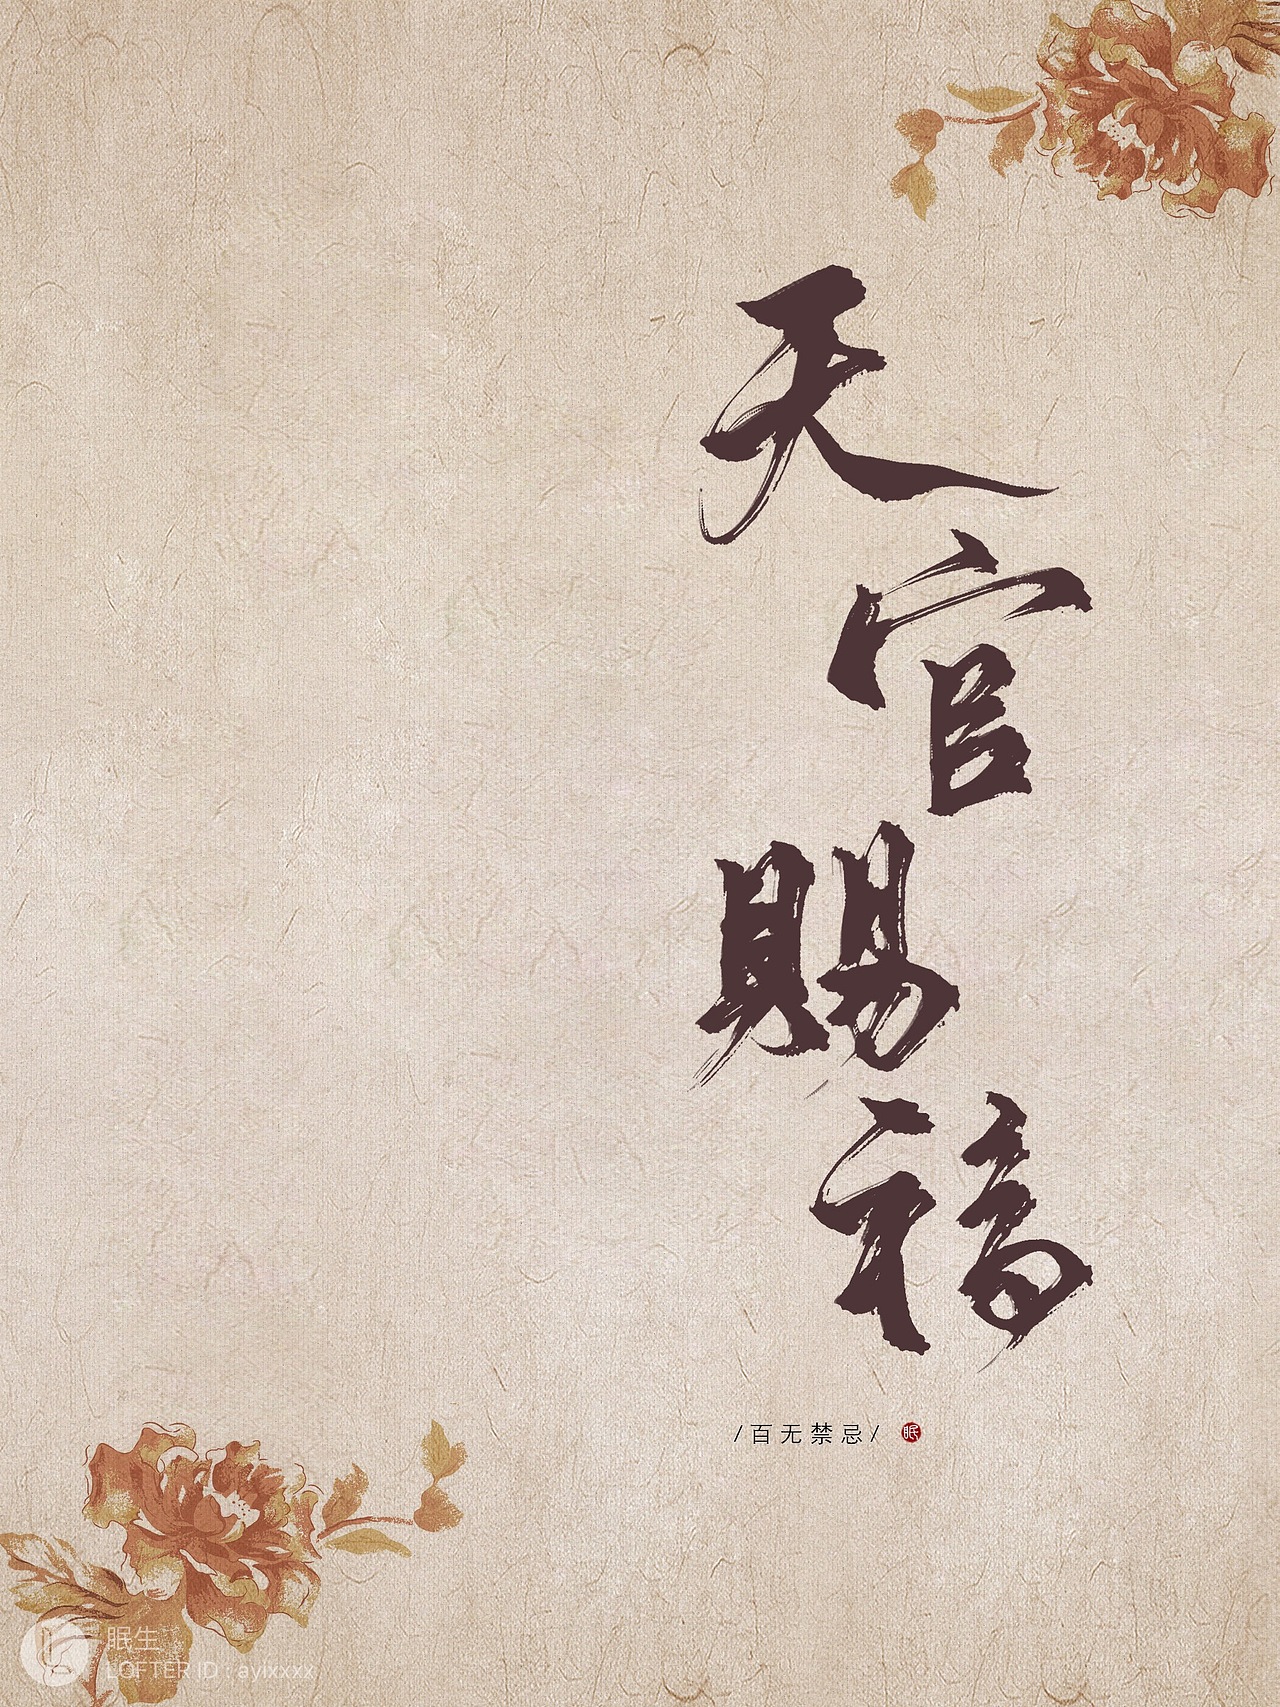 天官賜福
/百无禁忌/
眠
眠生
LOFTER ID : ayixxxx